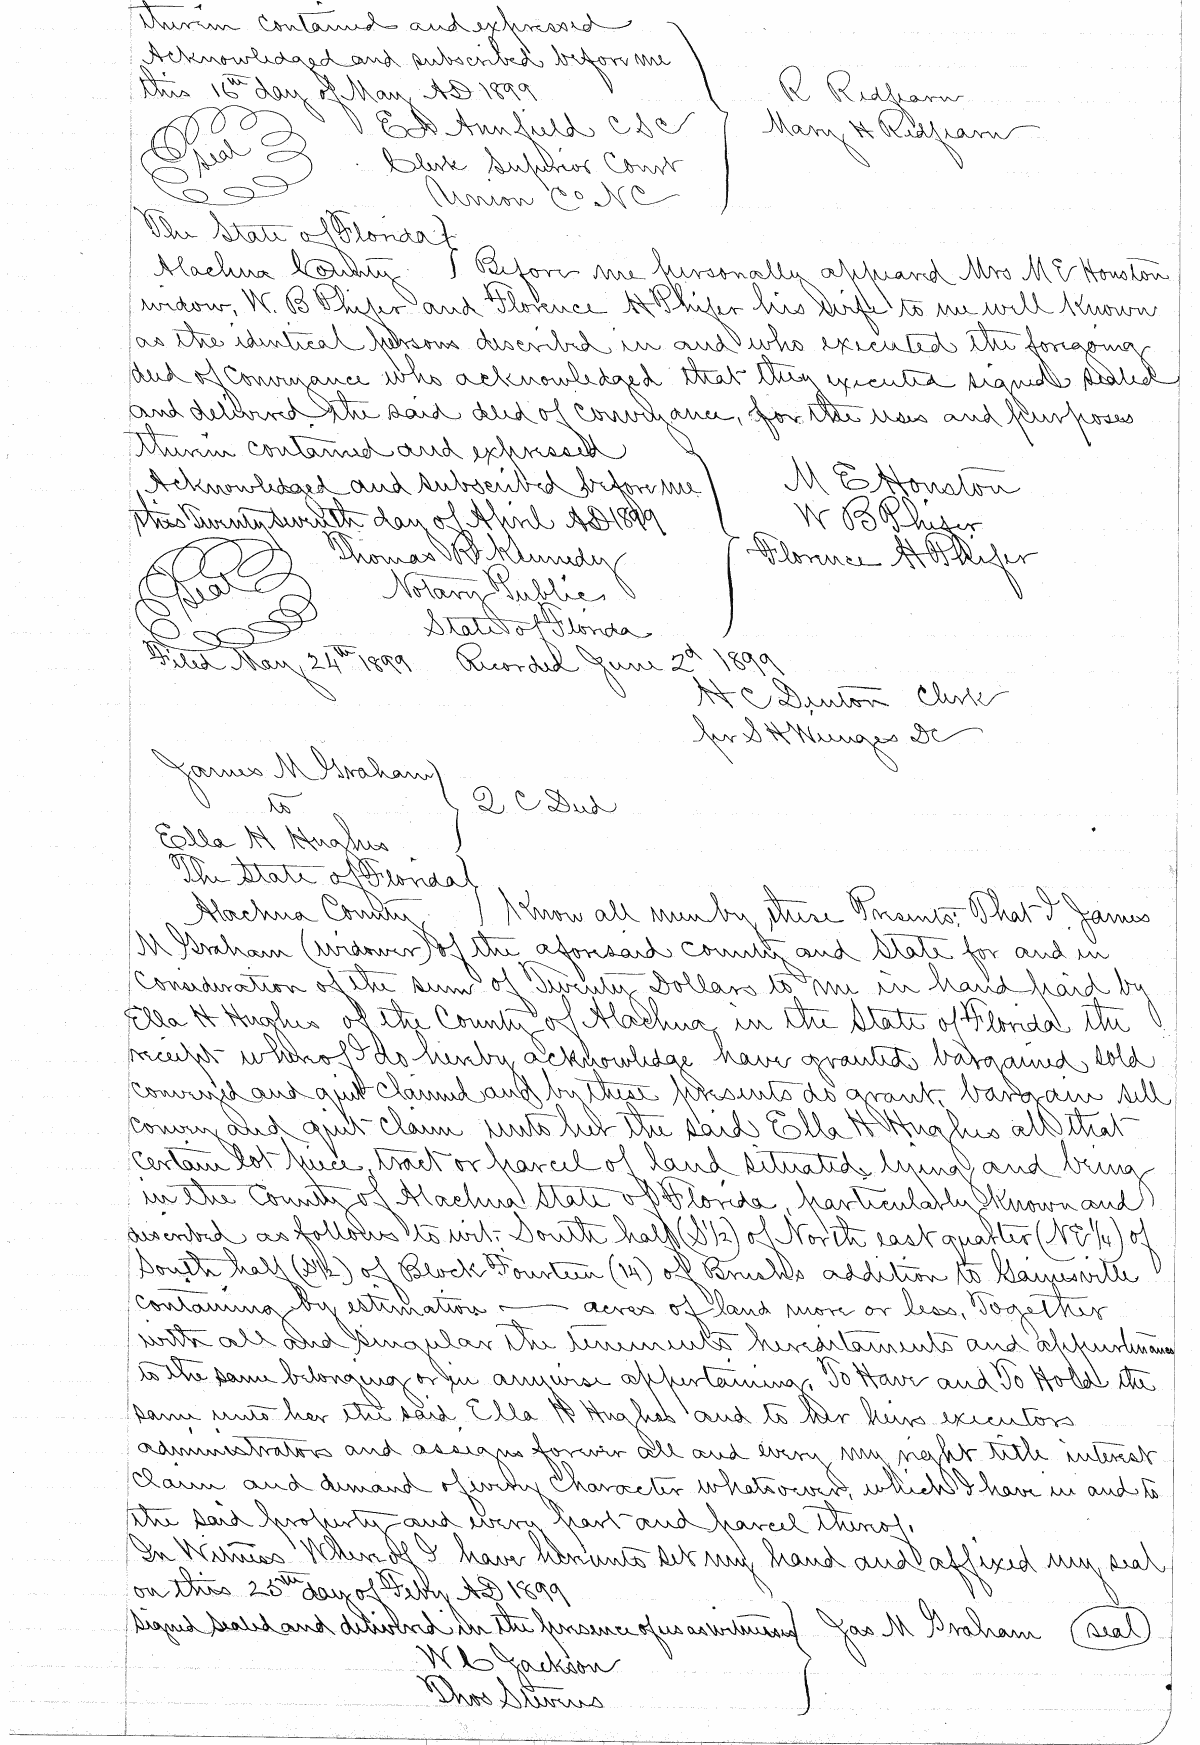 therein contained and expressed
Acknowledged and subscribed before me
this 16th day of May AD 1899
R Redfearn
Seal
E A Armfield CSC
Mary H Redfearn
Clerk Superior Court
Union Co NC
The State of Florida
Alachua County Before me personally appeared Mrs M E Houston
widow, W. B Phifer and Florence H Phifer his wife to me well known
as the identical persons described in and who executed the foregoing
deed of conveyance who acknowledged that they executed signed sealed
and delivered the said deed of conveyance, for the uses and purposes
therein contained and expressed
Acknowledged and subscribed before me
M E Houston
this Twenty seventh day of April AD 1899
W B Phifer
Seal
Thomas W Kennedy
Florence H Phifer
Notary Public
State of Florida
Filed May 24th 1899 Recorded June 2d 1899
H C Denton Clerk
per S H Wienges DC
James M Graham
to
Q C Deed
Ella H Hughes
The State of Florida
Alachua County Know all men by these Presents: That I James
M Graham (widower) of the aforesaid county and State for and in
consideration of the sum of Twenty Dollars to me in hand paid by
Ella H Hughes of the County of Alachua in the State of Florida the
receipt whereof I do hereby acknowledge have granted bargained sold
conveyed and quit claimed and by these presents do grant, bargain sell
convey and quit claim unto her the said Ella H Hughes all that
certain lot piece, tract or parcel of land situated, lying and being
in the County of Alachua State of Florida, particularly known and
described as follows to wit: South half (S1/2) of North east quarter (NE1/4) of
South half (S1/2) of Block Fourteen (14) of Brush's addition to Gainesville
containing by estimation — acres of land more or less, Together
with all and singular the tenements hereditaments and appurtenances
to the same belonging or in anywise appertaining, To Have and To Hold the
same unto her the said Ella H Hughes and to her heirs executors
administrators and assigns forever all and every my right title interest
claim and demand of every character whatsoever, which I have in and to
the said property and every part and parcel thereof.
In Witness Whereof I have hereunto set my hand and affixed my seal
on this 25th day of Feby AD 1899
Signed sealed and delivered in the presence of us as witnesses Jas M Graham seal
W C Jackson
Thos Stevens